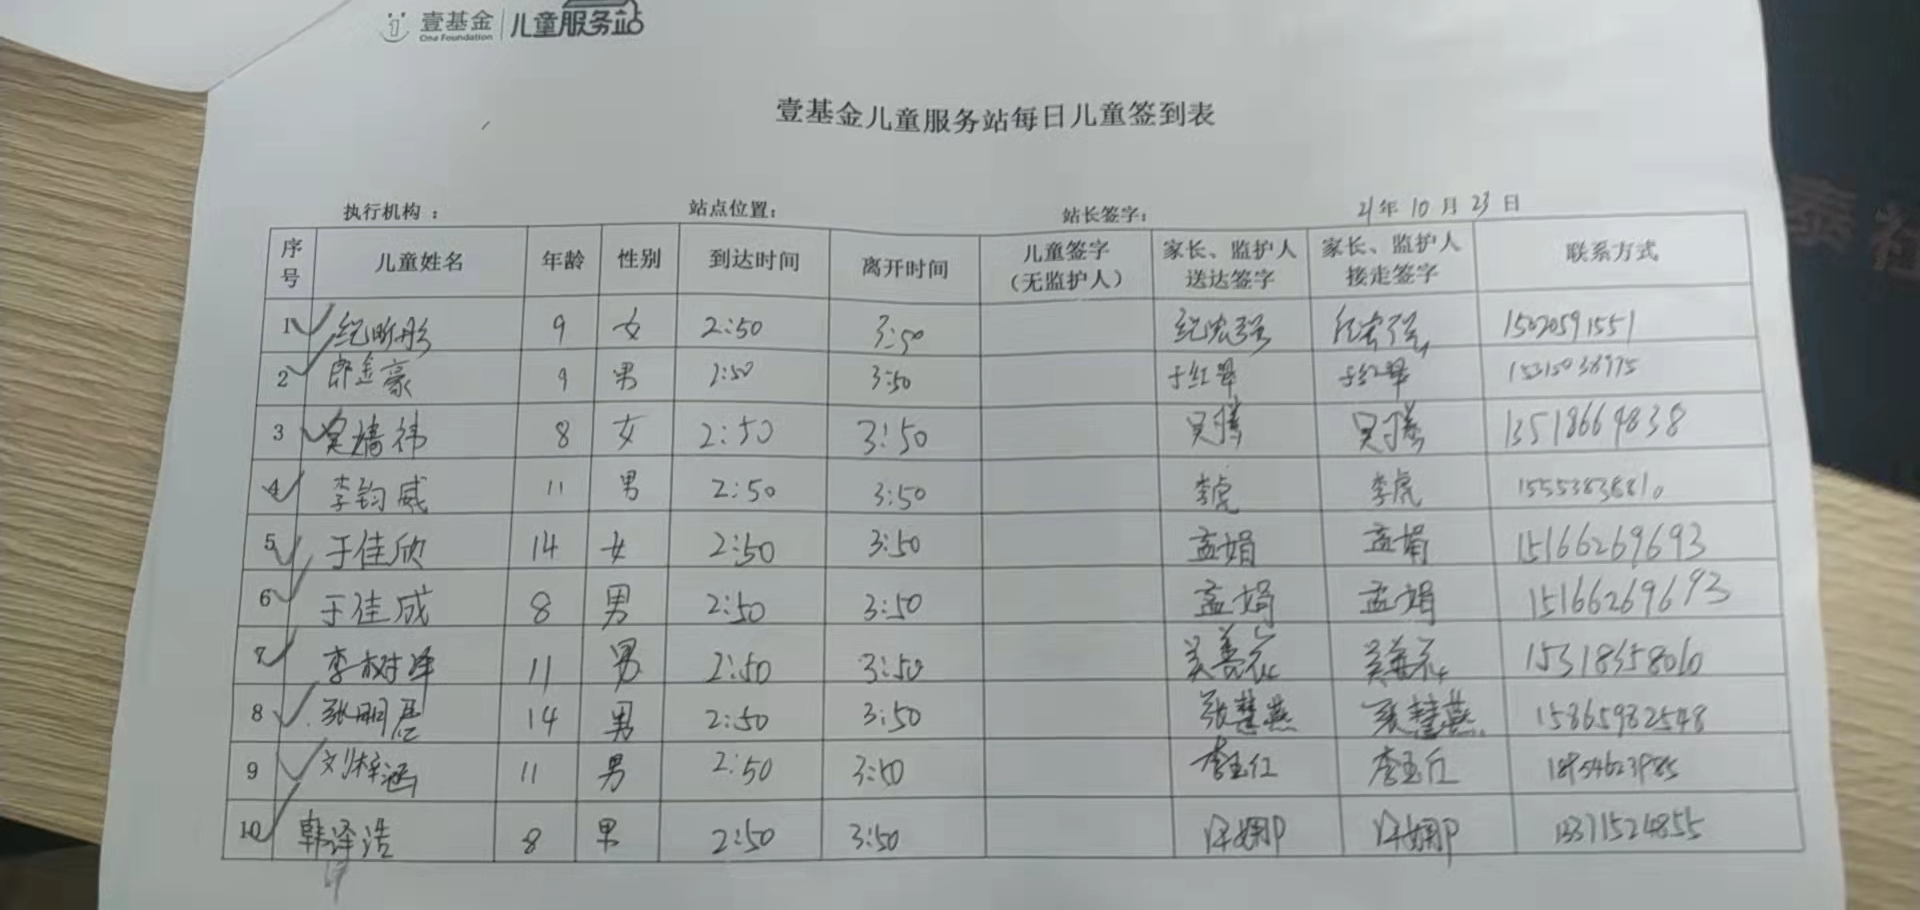 壹基金 儿童服务站
One Foundation
壹基金儿童服务站每日儿童签到表
执行机构： 站点位置： 站长签字： 21年 10月 23日
序号 儿童姓名 年龄 性别 到达时间 离开时间 儿童签字（无监护人） 家长、监护人送达签字 家长、监护人接走签字 联系方式
1 纪昕彤 9 女 2:50 3:50 纪宏强 纪宏强 15020591551
2 郎金豪 9 男 2:50 3:50 于红翠 于红翠
3 8 女 2:50 3:50 13518669838
4 李钧威 11 男 2:50 3:50 李虎 李虎 15553838810
5 于佳欣 14 女 2:50 3:50 孟娟 孟娟 15166269693
6 于佳成 8 男 2:50 3:50 孟娟 孟娟 15166269693
7 李树泽 11 男 2:50 3:50 15318358060
8 张明居 14 男 2:50 3:50 张慧燕 张慧燕 15865982548
9 刘梓涵 11 男 2:50 3:50 李玉红 李玉红
10 韩泽浩 8 男 2:50 3:50 13371524855